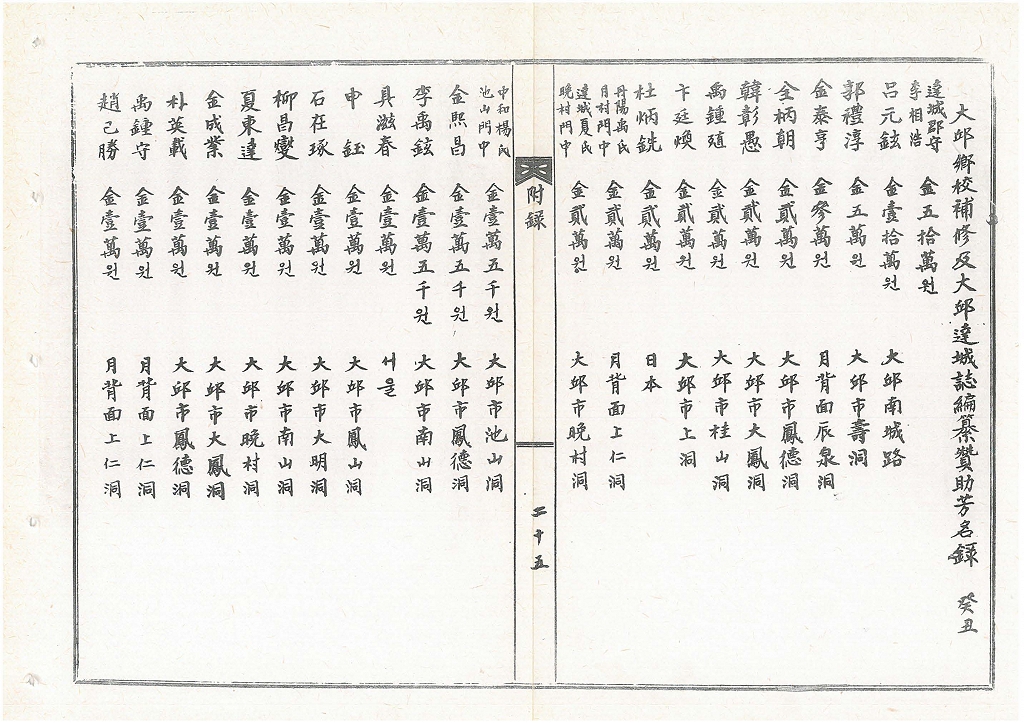 大邱鄕校補修及大邱達城誌編纂贊助芳名錄 癸丑
達城郡守
李相浩 金五拾萬원
呂元鉉 金壹拾萬원 大邱南城路
郭禮淳 金五萬원 大邱市壽洞
金泰亨 金參萬원 月背面辰泉洞
全柄朝 金貳萬원 大邱市鳳德洞
韓彰愚 金貳萬원 大邱市大鳳洞
禹鍾殖 金貳萬원 大邱市桂山洞
卞廷煥 金貳萬원 大邱市上洞
杜炳銑 金貳萬원 日本
丹陽禹氏
月村門中 金貳萬원 月背面上仁洞
達城夏氏
晩村門中 金貳萬원 大邱市晩村洞
附録
二十五
中和楊氏
池山門中 金壹萬五千원 大邱市池山洞
金熙昌 金壹萬五千원 大邱市鳳德洞
李禹鉉 金壹萬五千원 大邱市南山洞
具滋春 金壹萬원 서울
申鈺 金壹萬원 大邱市鳳山洞
石在琢 金壹萬원 大邱市大明洞
柳昌燮 金壹萬원 大邱市南山洞
夏東達 金壹萬원 大邱市晩村洞
金成業 金壹萬원 大邱市大鳳洞
朴英載 金壹萬원 大邱市鳳德洞
禹鍾守 金壹萬원 月背面上仁洞
趙己勝 金壹萬원 月背面上仁洞